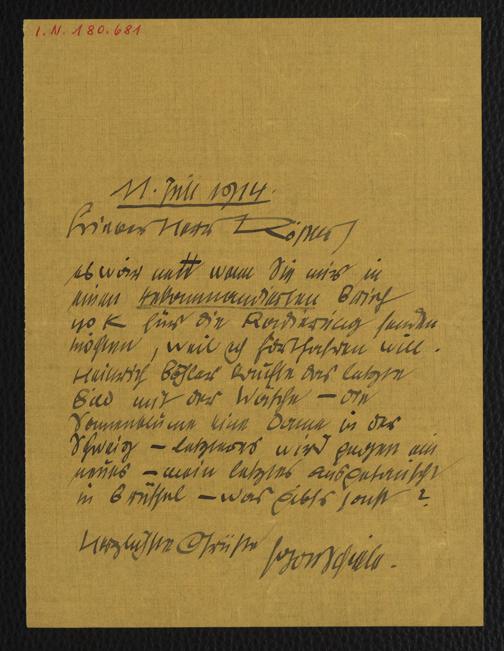 I.N. 180.681
11. Juli 1914.
Lieber Herr Rößler!
es wär nett wenn Sie mir in
einem rekommandierten Brief
40 K für die Radierung senden
möchten, weil ich fortfahren will.
Heinrich Böhler kaufte das letzte
Bild mit der Wäsche – die
Sonnenblume eine Dame in der
Schweiz – letzteres wird gegen ein
neues – mein letztes ausgetauscht
in Brüssel – was gibts sonst?
Herzlichste Grüße Egon Schiele.